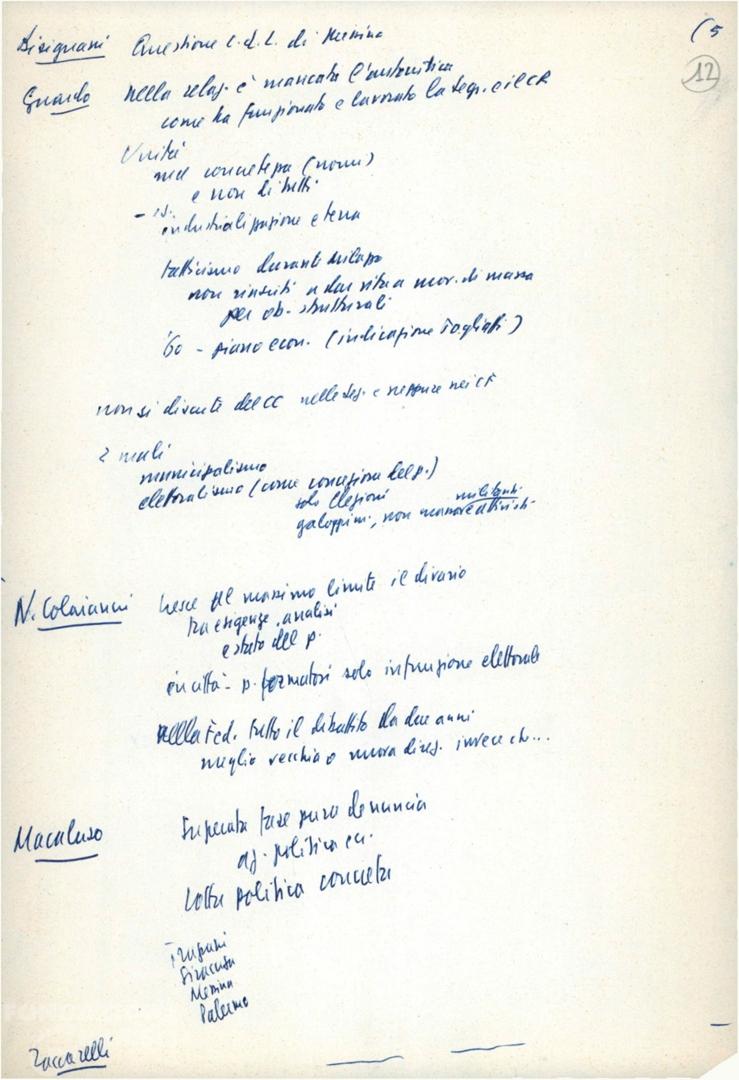 (5
12
Bisignani Questione C.d.L. di Messina
Guardo nella relaz. è mancata l'autocritica
come ha funzionato e lavorato la segr. e il CR
Unità
nel concretezza (nomi)
e non di tutti
- es.
industrializzazione e terra
tatticismo durante milazzo
non riusciti a dar vita a mov. di massa
per ob. strutturali
'60 - piano econ. (indicazione Togliatti)
non si discute del CC nelle sez. e neppure nei CF
2 mali
municipalismo
elettoralismo (come concezione del p.)
solo elezioni
galoppini, non militanti
attivisti
N. Colaianni cresce al massimo limite il divario
tra esigenze, analisi
e stato del p.
in città - p. formatosi solo in funzione elettorale
nella Fed. tutto il dibattito da due anni
meglio vecchia o nuova direz. invece di...
Macaluso Superata fase pura denuncia
politica
lotta politica concreta
Trapani
Siracusa
Messina
Palermo
Zaccarelli